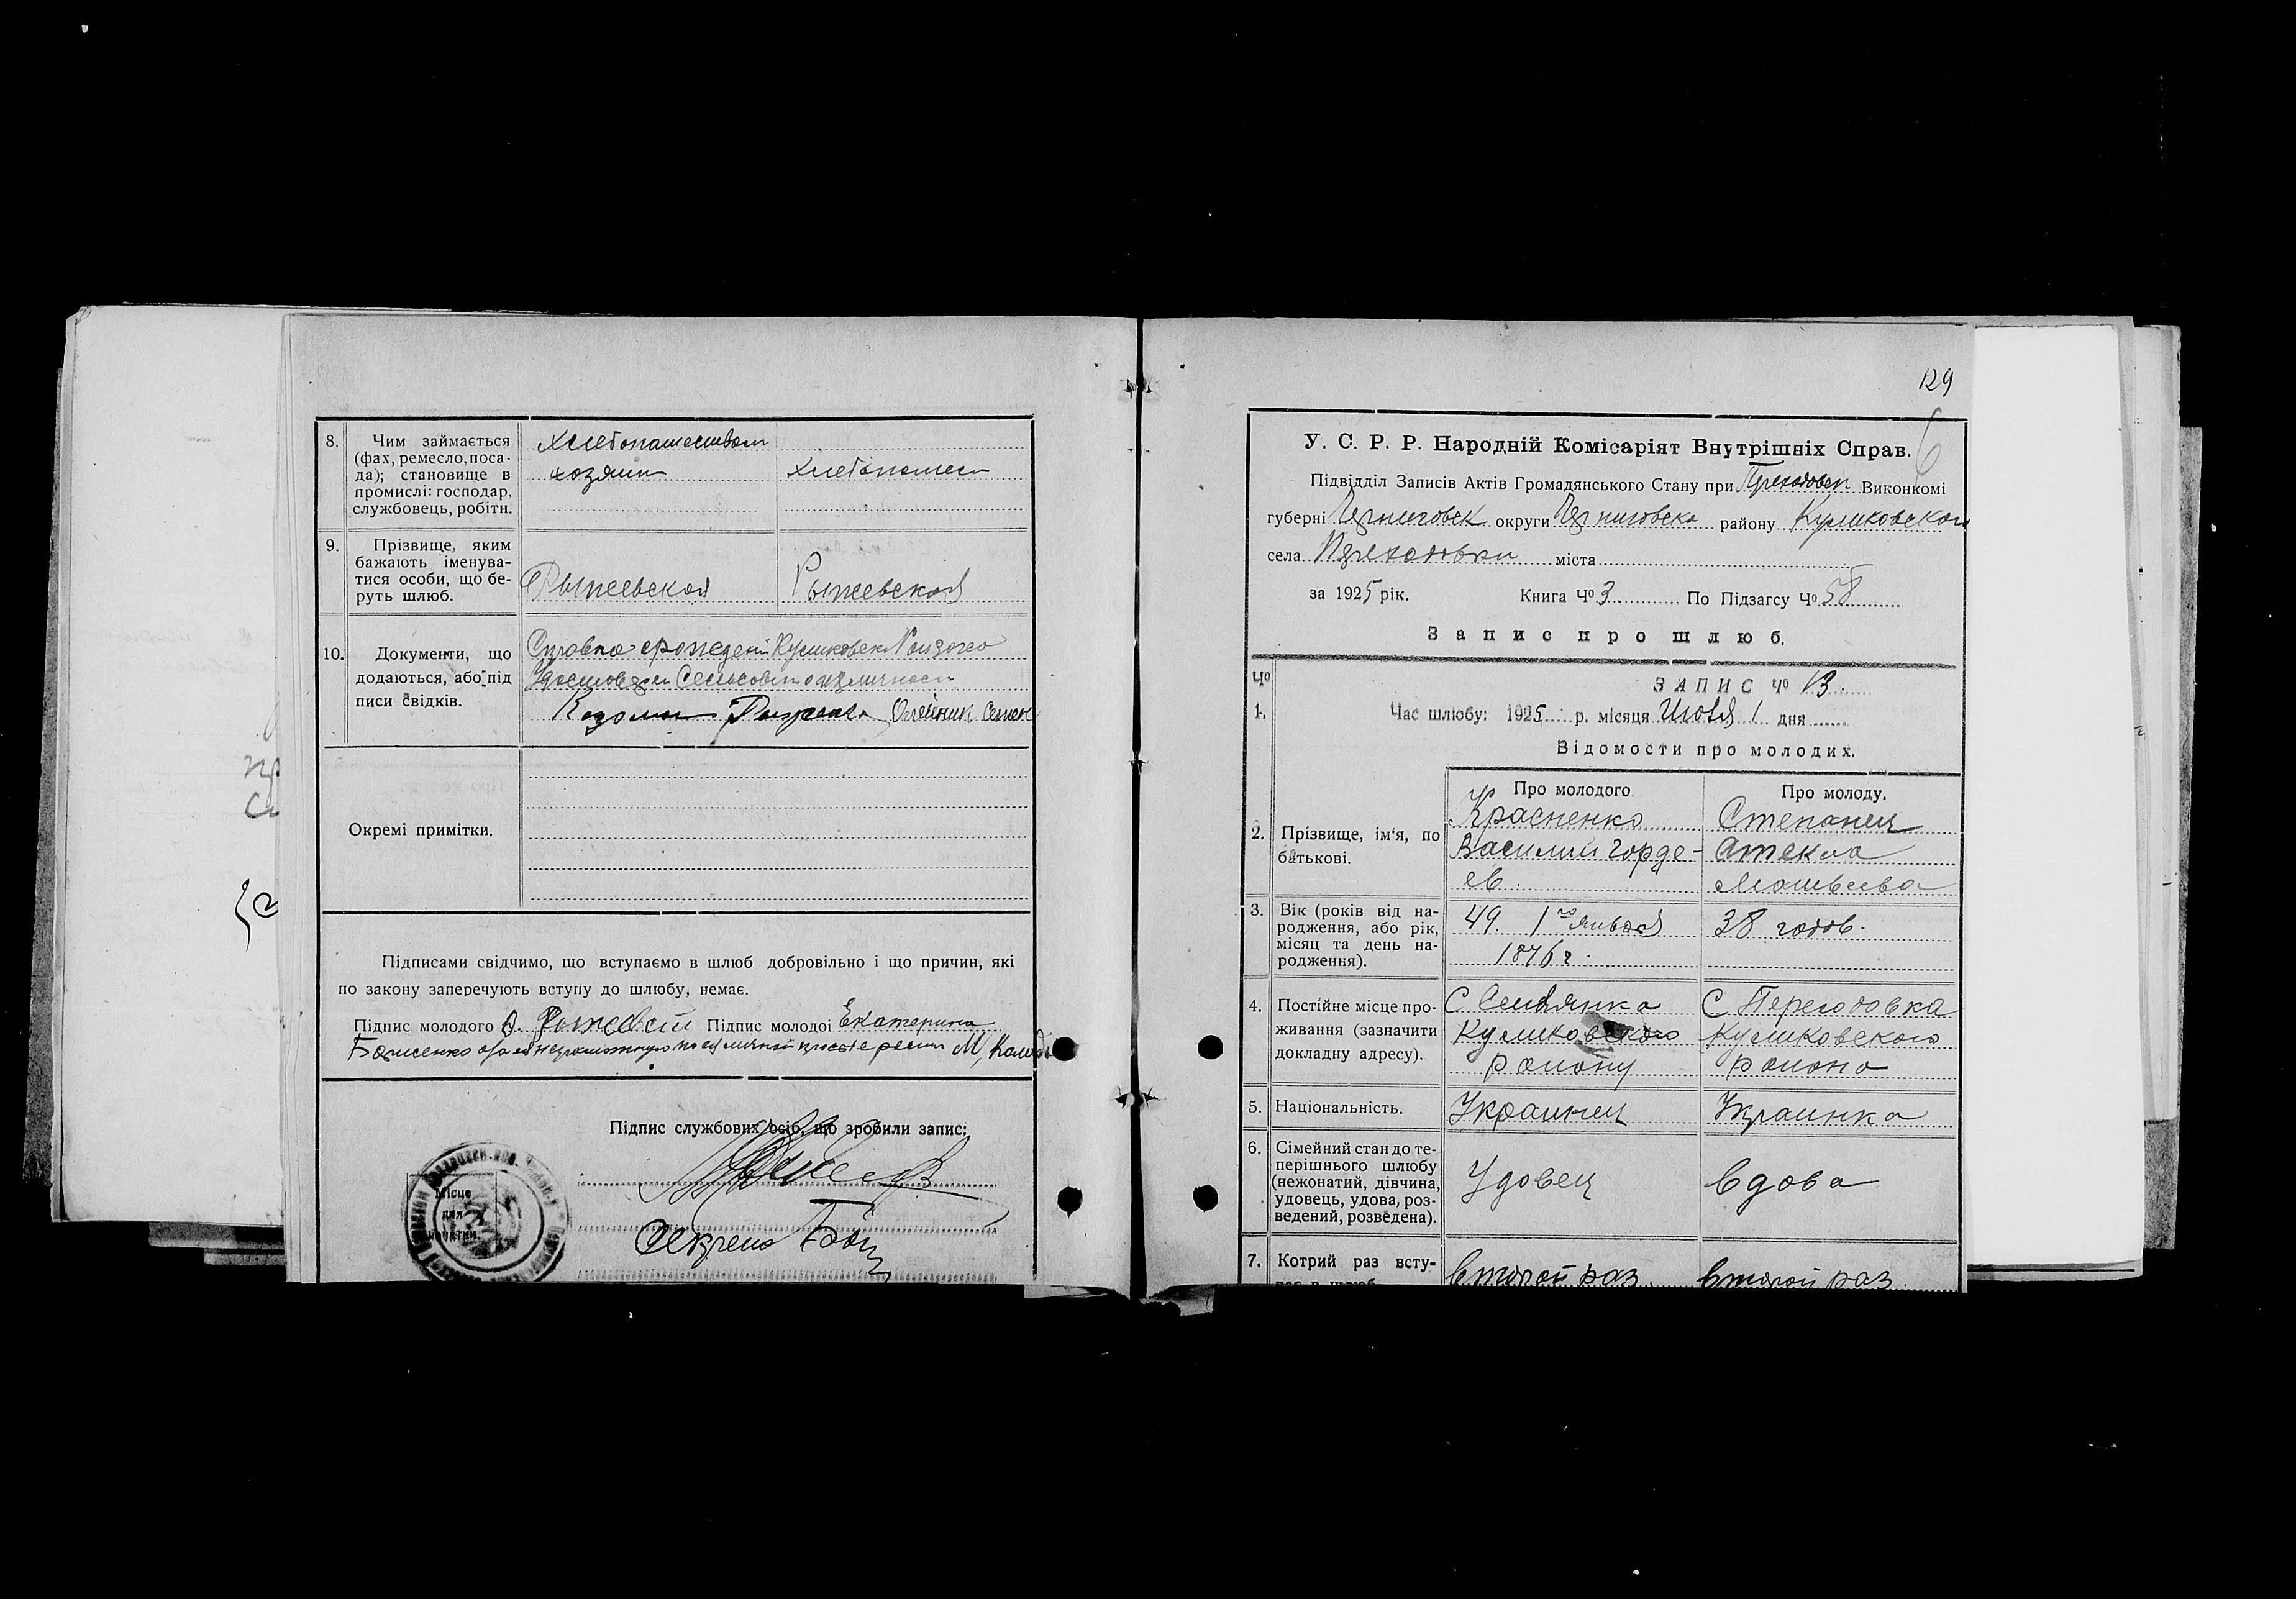 8.
Чим займається
(фах, ремесло, поса-
да); становище в
промислі: господар,
службовець, робітн.
Хлебопашеством
хозяин
Хлебопашест
9.
Прізвище, яким
бажають іменува-
тися особи, що бе-
руть шлюб.
Рыжевской
Рыжевская
10.
Документи, що
додаються, або під
писи свідків.
Справка Куликовск
Сельсовет о личност
Олейник Семен
Окремі примітки.
Підписами свідчимо, що вступаємо в шлюб добровільно і що причин, які
по закону заперечують вступу до шлюбу, немає.
Підпис молодого Підпис молодоі Екатерина
Борисенко
Підпис службових осіб, що зробили запис:
Місце
для
печатки.
Секрет
129
У. С. Р. Р. Народній Комісаріят Внутрішніх Справ.
Підвідділ Записів Актів Громадянського Стану при Виконкомі
губерні Черниговск округи Черниговско району Куликовского
села міста
за 1925 рік. Книга Чо 3 По Підзагсу Чо 58
Запис про шлюб.
Чо
ЗАПИС Чо 13.
1.
Час шлюбу: 1925 р. місяця 1 дня
Відомости про молодих.
Про молодого.
Про молоду.
2.
Прізвище, ім'я, по
батькові.
Красненко
Василий Горде-
ев
Степанец
Фтекла
Мотвеева
3.
Вік (років від на-
родження, або рік,
місяц та день на-
родження).
49 1го Января
1876 г.
38 годов.
4.
Постійне місце про-
живання (зазначити
докладну адресу).
С
Куликовского
району
С Переходовка
Куликовского
района
5.
Національність.
Украинец
Украинка
6.
Сімейний стан до те-
перішнього шлюбу
(нежонатий, дівчина,
удовець, удова, роз-
ведений, розведена).
Удовец
Вдова
7.
Котрий раз всту-
второй раз
второй раз.